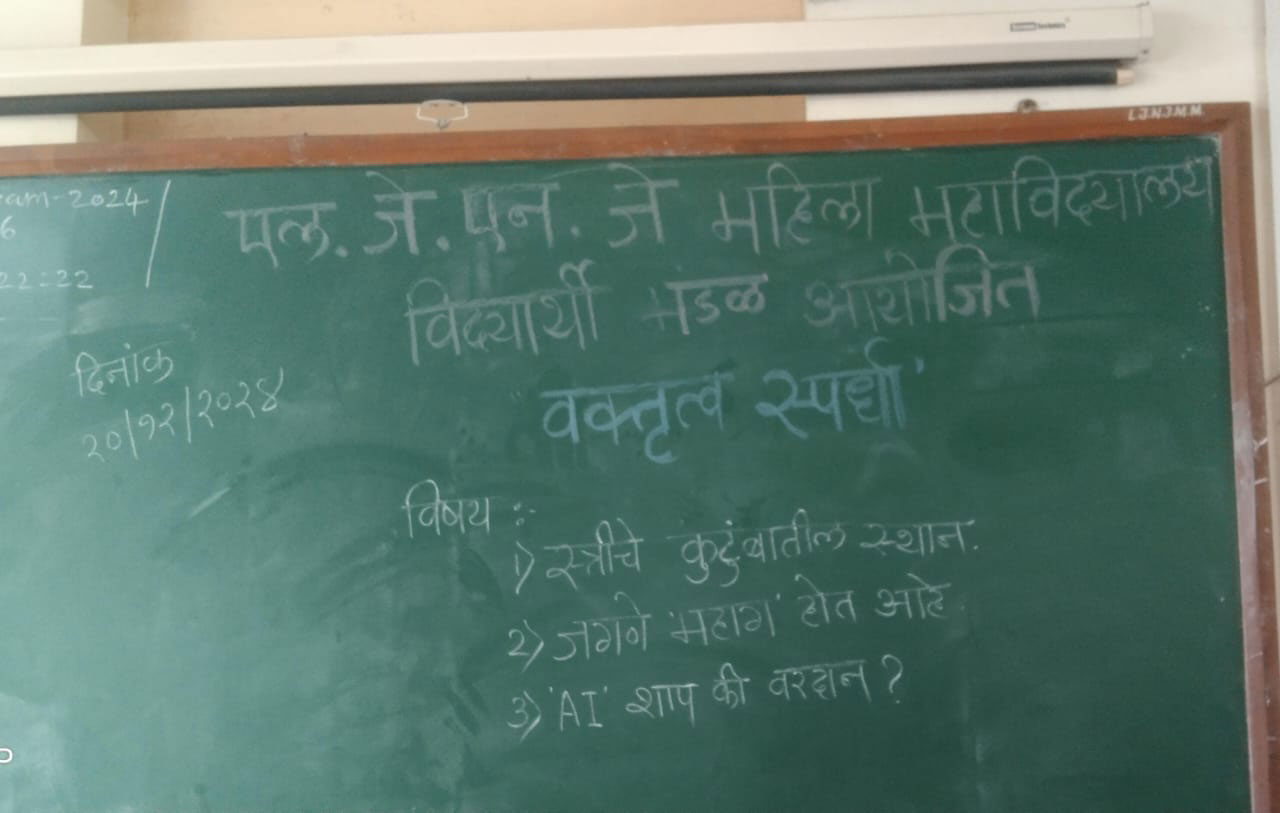 L.J.N.J.M.M.
am-2024
6
22:22
एल. जे. एन. जे महिला महाविद्यालय
विद्यार्थी मंडळ आयोजित
दिनांक
२०/१२/२०२४
"वक्तृत्व स्पर्धा"
विषय :-
1) स्त्रीचे कुटुंबातील स्थान.
2) जगणे 'महाग' होत आहे
3) 'AI' शाप की वरदान ?